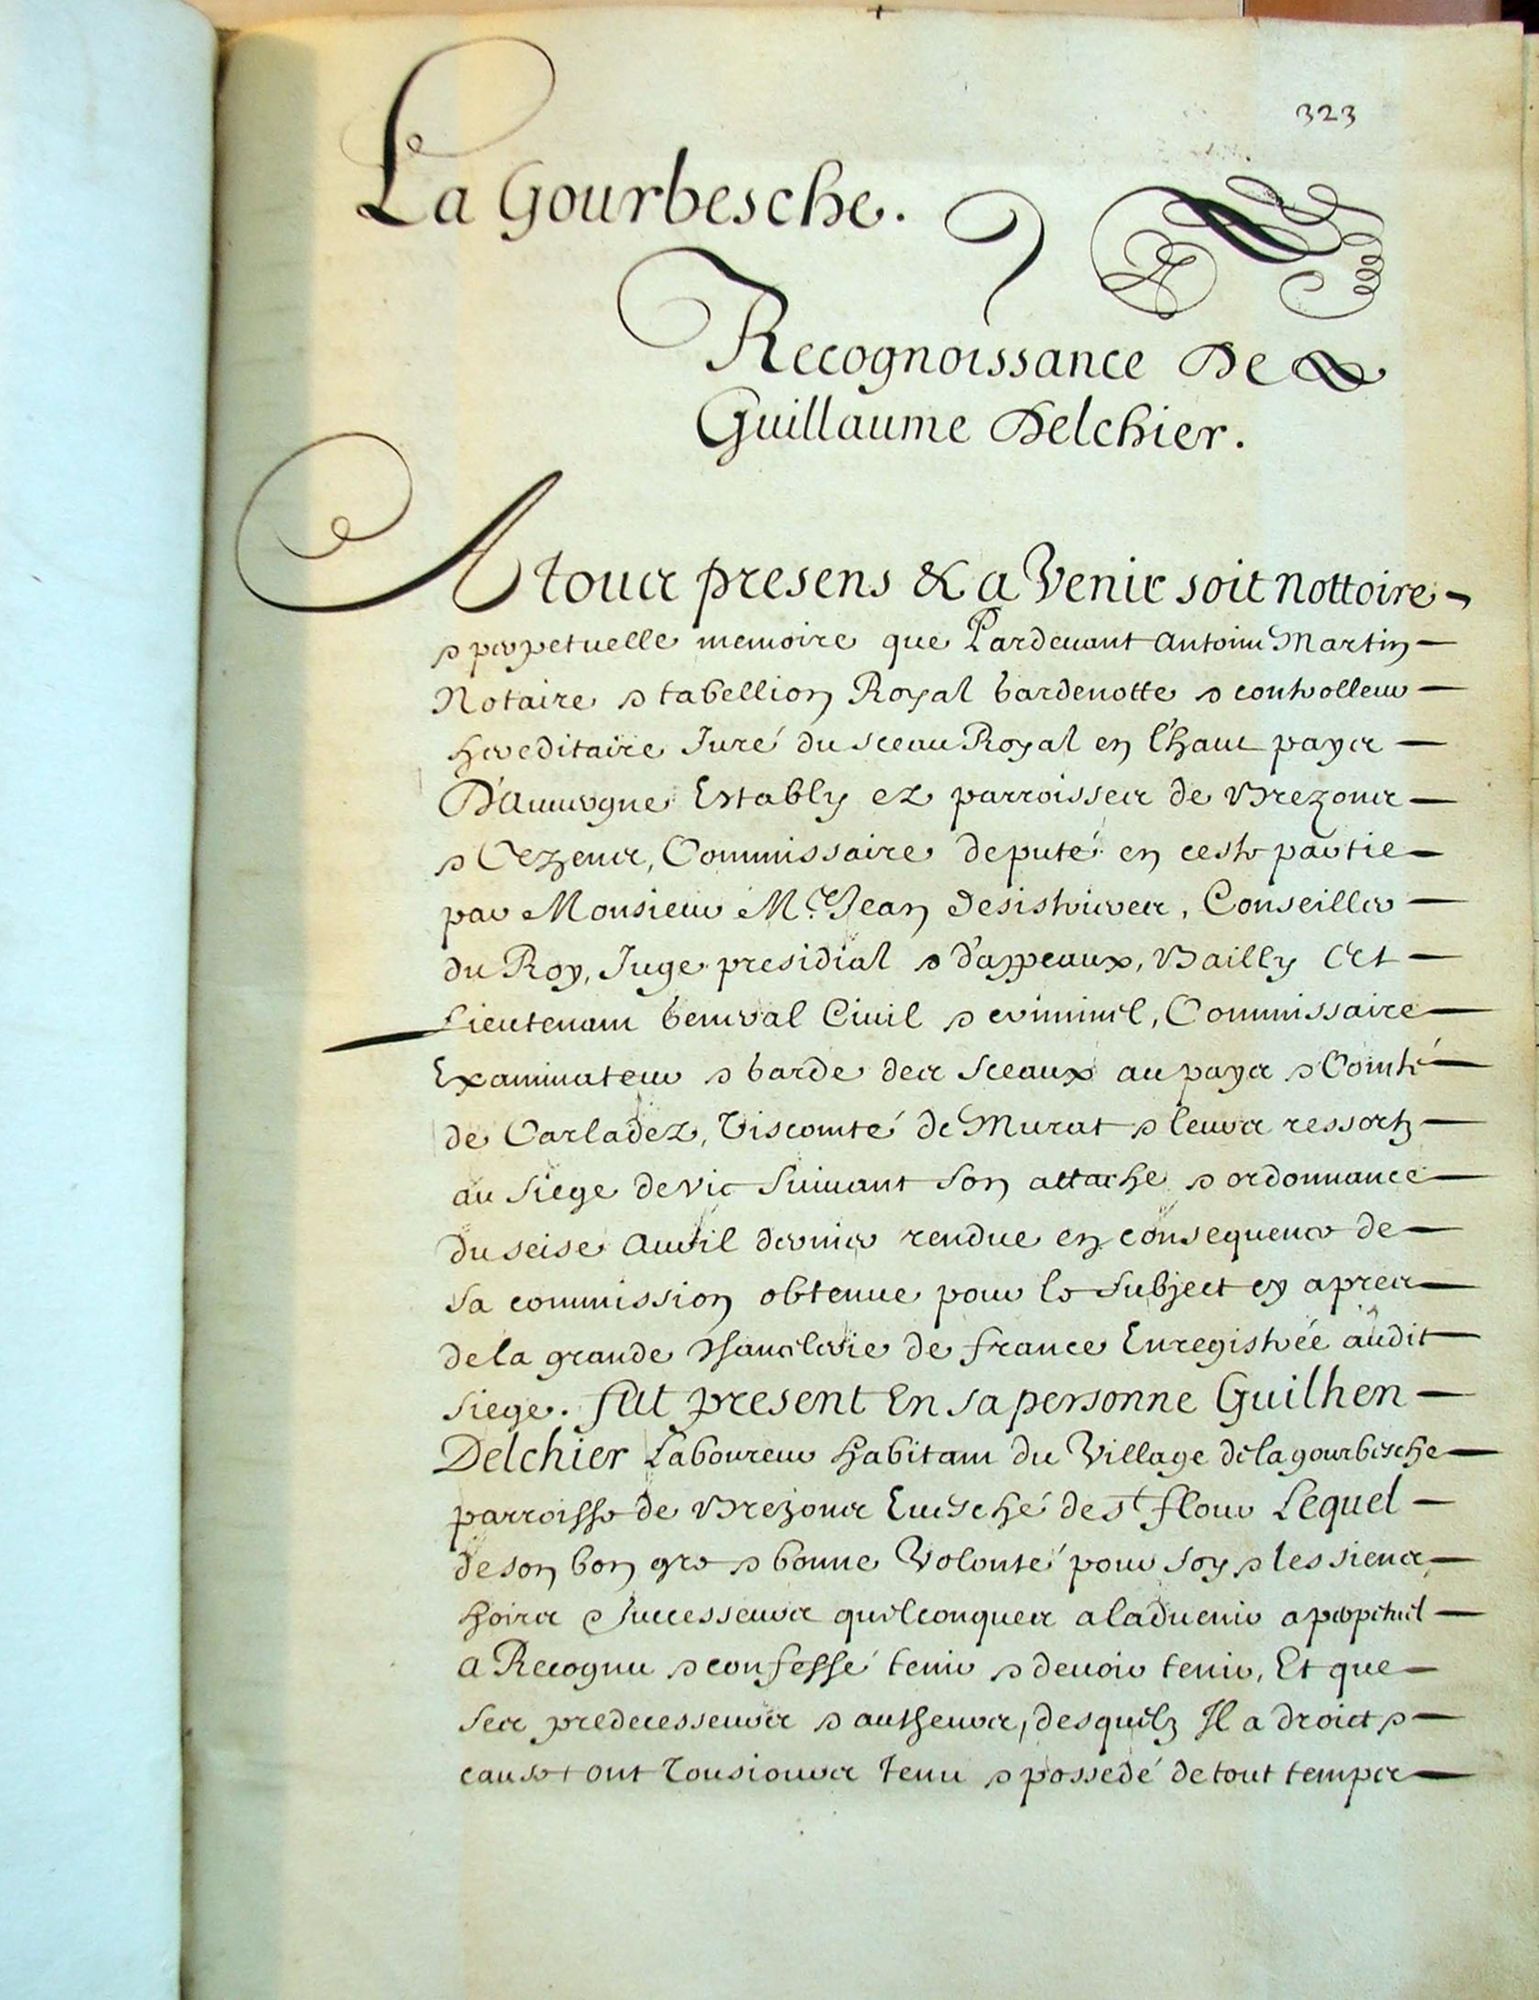 323
La Gourbesche.
Recognoissance de
Guillaume Delchier.
A tous presens & a Venir soit nottoire
& perpetuelle memoire que Pardeuant Antoine Martin
Notaire & tabellion Royal gardenotte & controlleur
hereditaire Juré du sceau Royal en l'haut pays
D'Auuergne Estably ez parroisses de Brezons
& Cezens, Commissaire deputé en ceste partie
par Monsieur Mc. Jean Desistrieres, Conseiller
du Roy, Juge presidial & d'appeaux, Bailly Et
Lieutenant general Ciuil & criminel, Commissaire
Examinateur & garde des Sceaux au pays & Comté
de Carladez, Viscomté de Murat & leurs ressortz
au siege de Vic suiuant son attache & ordonnance
du seise Auril dernier rendue en consequence de
sa commission obtenue pour le subject cy apres
de la grande chancelerie de france Enregistrée audit
siege. fut present En sa personne Guilhen
Delchier Laboureur habitant du Village de la gourbesche
parroisse de Brezons Euesché de St flour Lequel
de son bon gre & bonne Volonté pour soy & les siens
hoirs & successeurs quelconques a laduenir a perpetuel
a Recognu & confessé tenir & deuoir tenir, Et que
ses predecesseurs & autheurs, desquelz Il a droict &
cause ont Tousiours tenu & possedé de tout temps